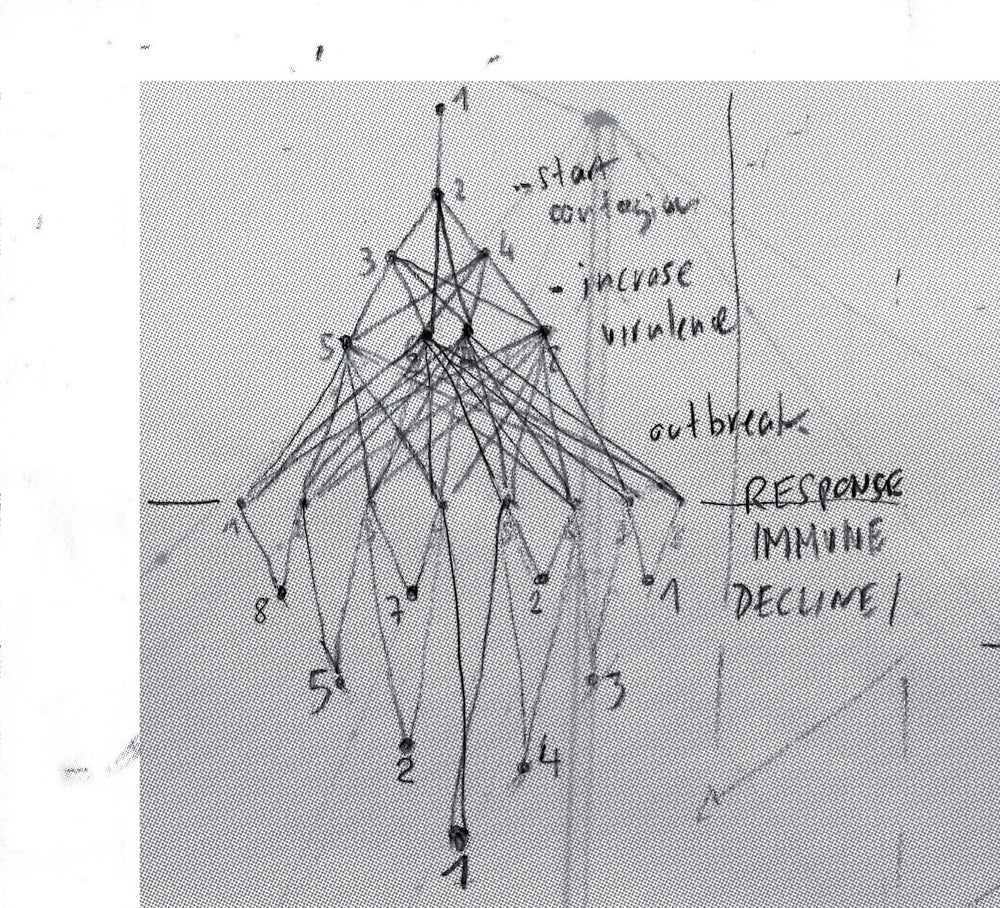 1
2
- start
contagion
3 4
- incrase
virulence
5
outbreak
RESPONSE
IMMUNE
DECLINE/
8 7 2 1
5 3
2 4
1